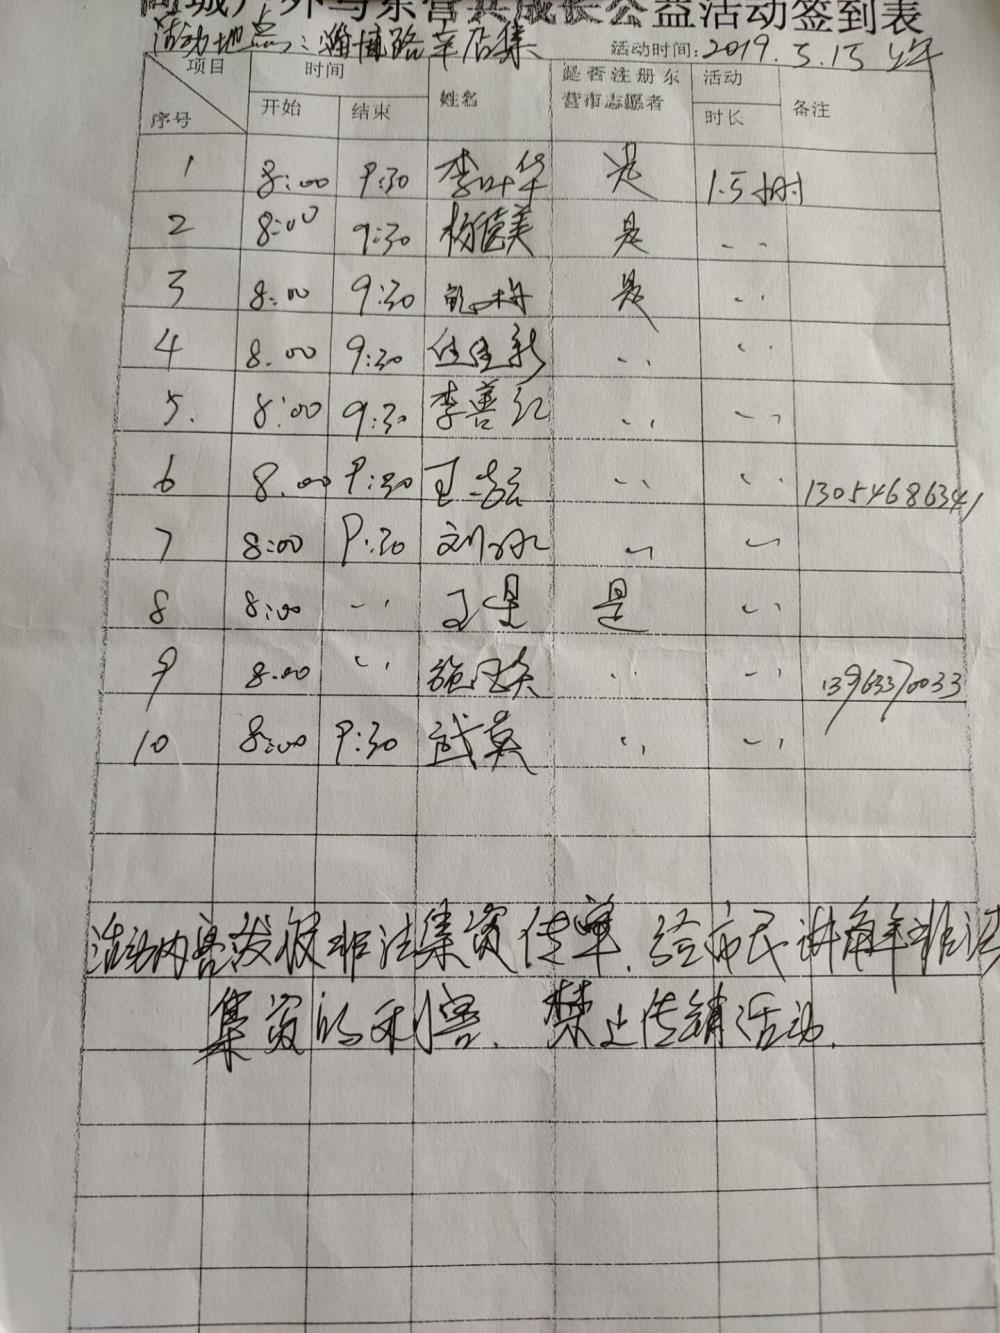 外与东营共成长公益活动签到表
活动地点：淄博路辛店集 活动时间：2019.5.15 上午
项目 时间 姓名 是否注册东营市志愿者 活动时长 备注
序号 开始 结束
1 8:00 9:30 李叶华 是 1.5小时
2 8:00 9:30 杨德美 是 〃
3 8:00 9:30 是 〃
4 8.00 9:30 〃 〃
5. 8:00 9:30 李善红 〃 〃
6 8.00 9:30 王 〃 〃 13054686341
7 8:00 9:30 刘 〃 〃
8 8:00 〃 王 是 〃
9 8.00 〃 〃 〃 13963370033
10 8:00 9:30 武英 〃 〃
活动内容发放非法集资传单.给市民讲解非法
集资的利害.禁止传销活动.